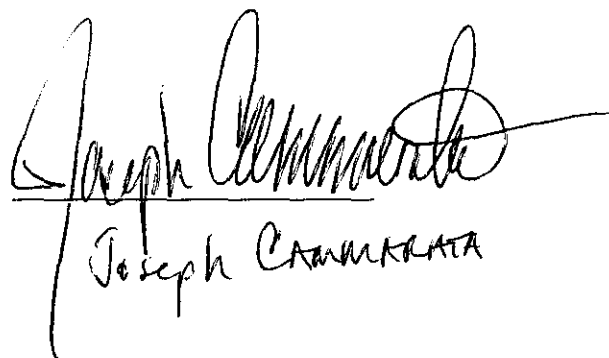 Joseph Cammarata
Joseph CAMMARATA